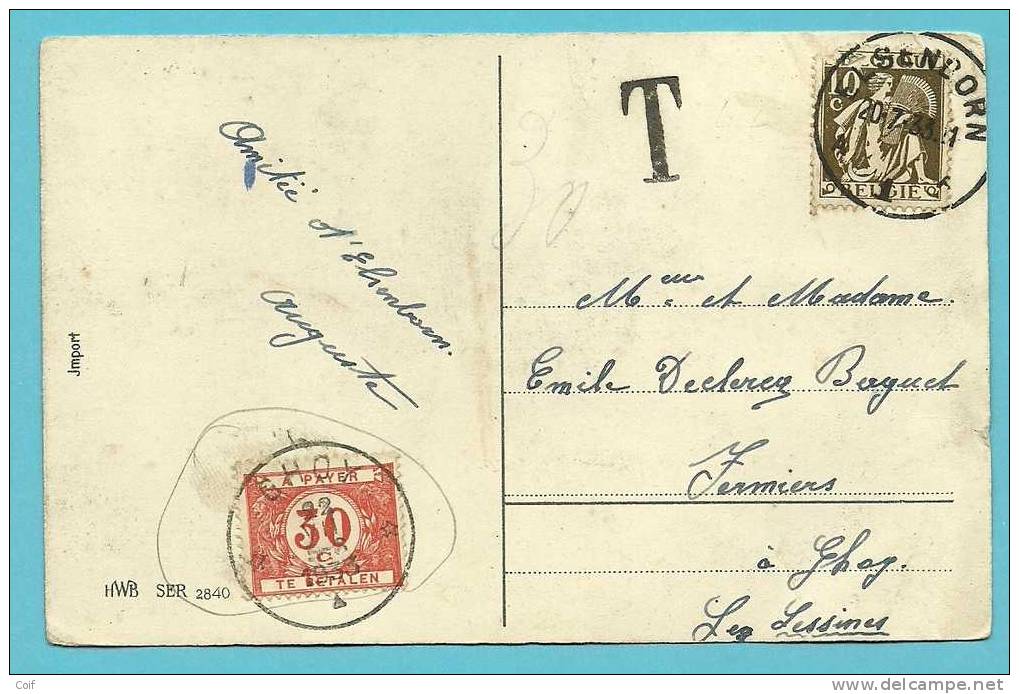 T
10
C
BELGIE
SENBORN
20.7.33
Amitié d'Elsenborn.
Auguste
Meur et Madame.
Emile Declercq Baguet
Fermiers
à Ghoy.
Lez Lessines
Jmport
GHOY
A PAYER
30
C
TE BETALEN
HWB SER 2840
Coif
www.delcampe.net